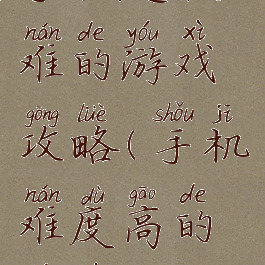 nán de yóu xì
难的游戏
gōng lüè shǒu jī
攻略(手机
nán dù gāo de
难度高的